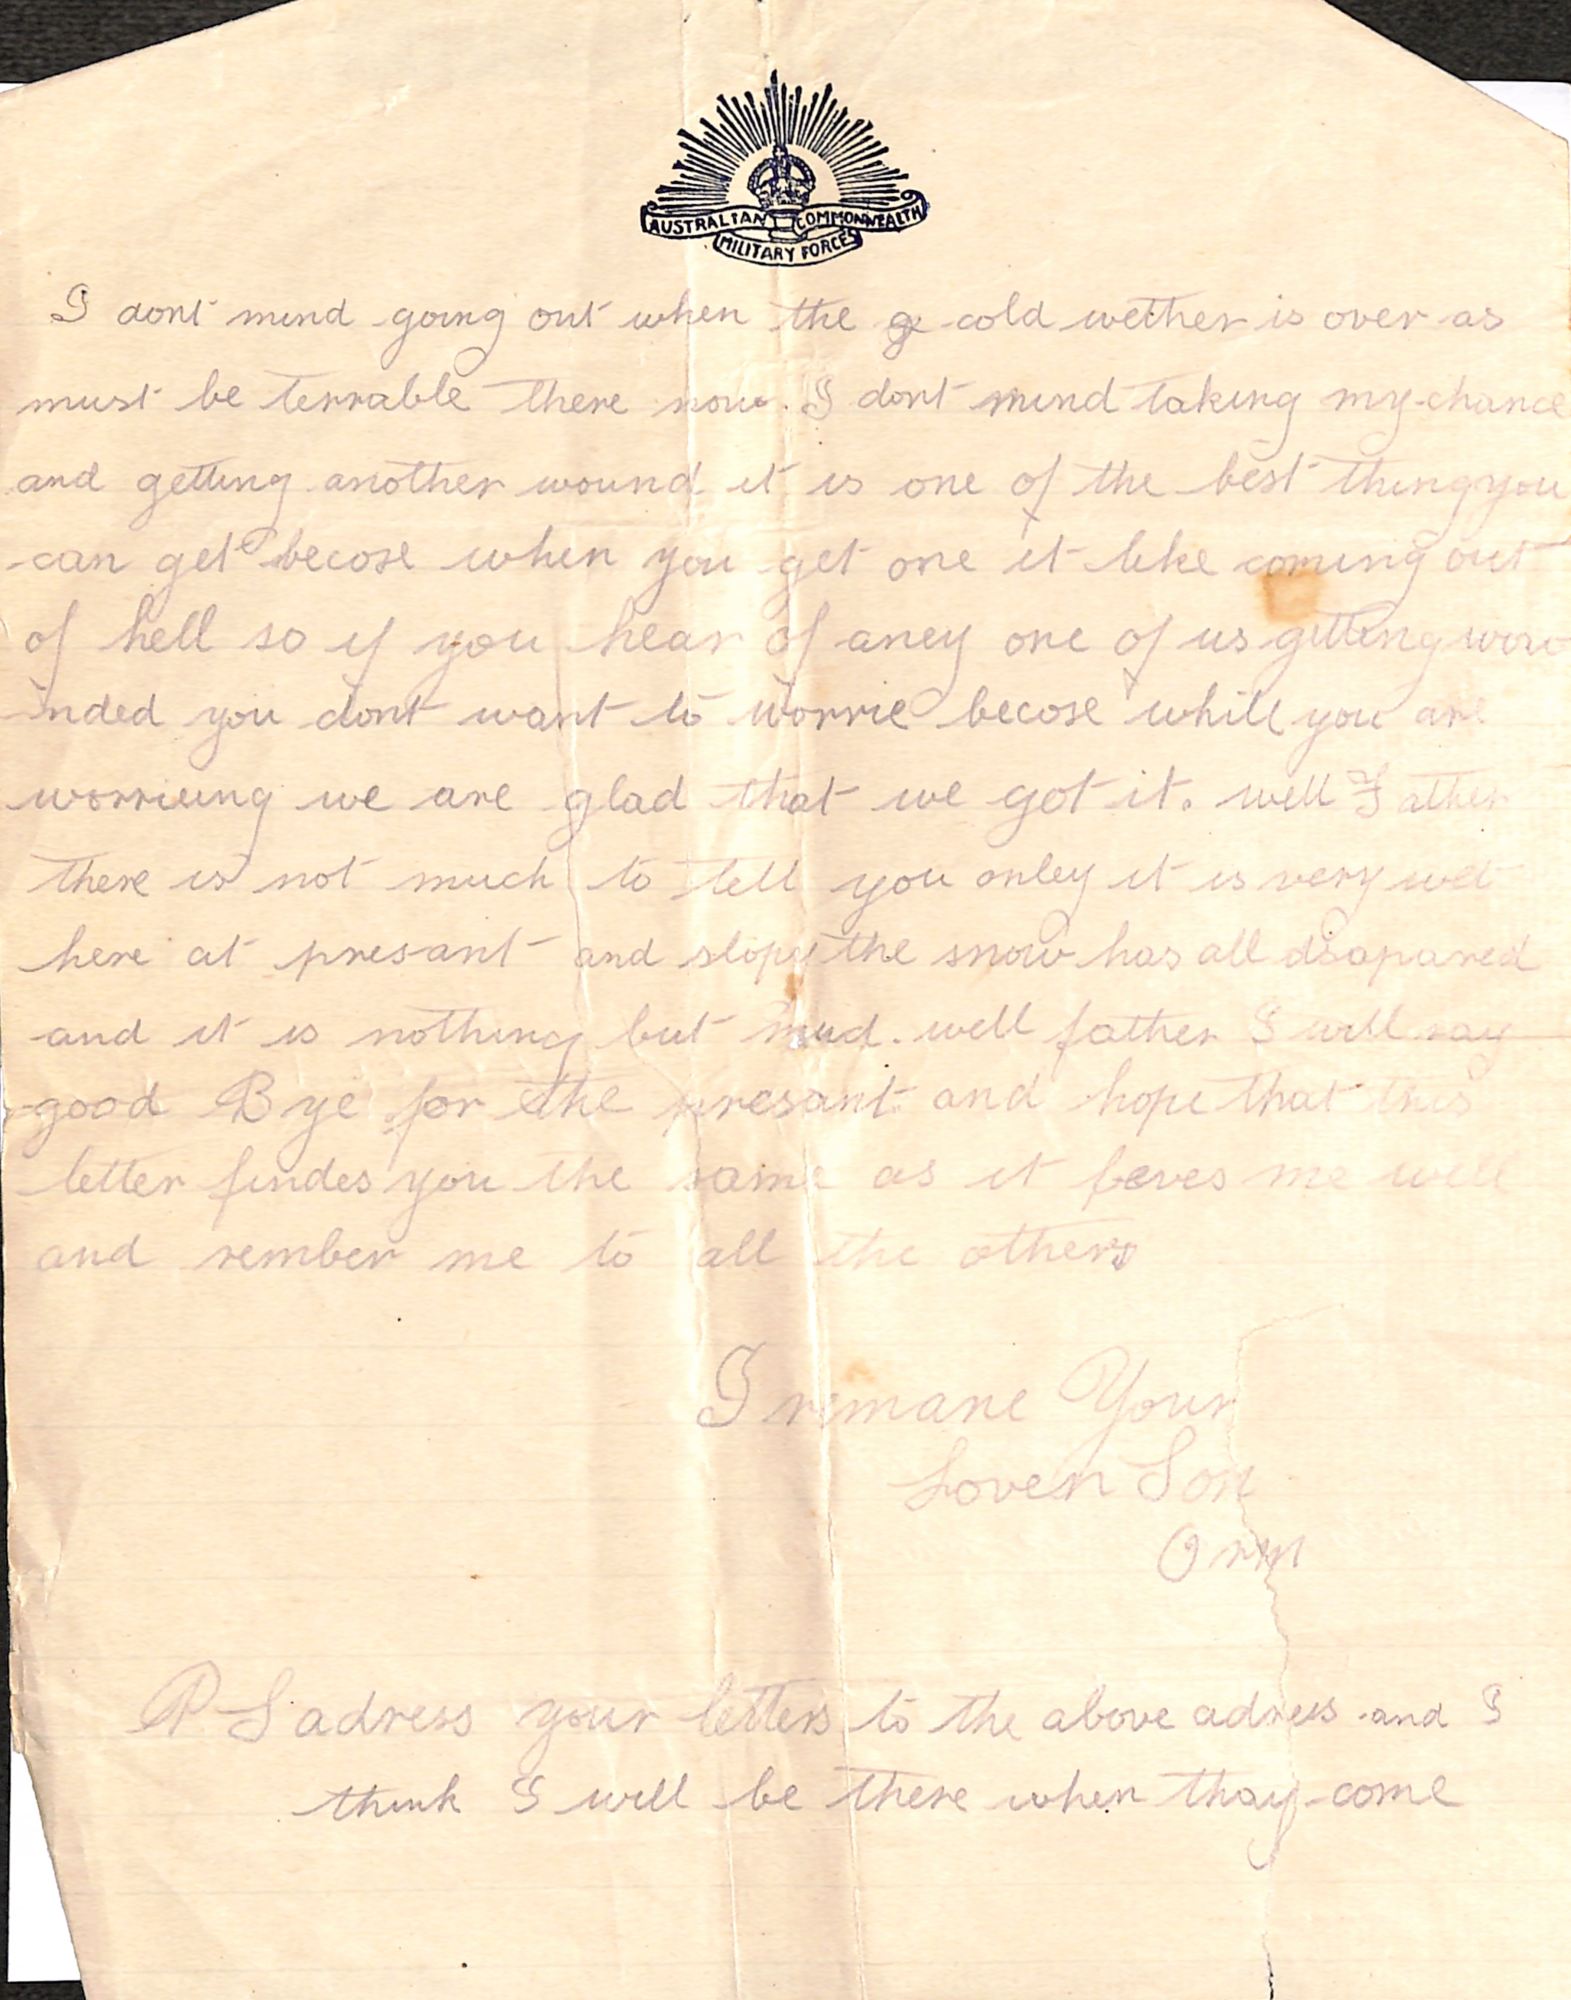 AUSTRALIAN COMMONWEALTH
MILITARY FORCES
I dont mind going out when the cold wether is over as
must be terrable there now. I dont mind taking my chance
and getting another wound it is one of the best thing you
can get becose when you get one it like coming out
of hell so if you hear of aney one of us gitting wou
inded you dont want to worrie becose while you are
worrieing we are glad that we got it. well Father
there is not much to tell you onley it is very wet
here at presant and slopy the snow has all disapared
and it is nothing but mud. well father I will say
good Bye for the presant and hope that this
letter findes you the same as it leves me well
and rember me to all the others
I remane Your
Loven Son
Orm
P S adress your letters to the above adress and I
think I will be there when thay come